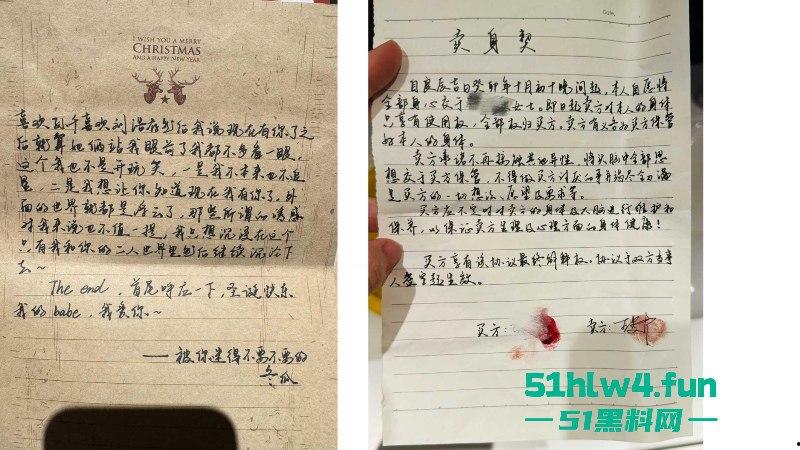 I WISH YOU A MERRY
CHRISTMAS
AND A HAPPY NEW YEAR
喜欢瓦子喜欢刘浩存到后我说现在有你了之
后就算她俩站我眼前了我都不多看一眼,
这个我也不是开玩笑,一是我本来也不追
星,二是我想让你知道现在我有你了,外
面的世界就都是浮云了,那些所谓的诱惑
对我来说也不值一提,我只想沉浸在这个
只有我和你的二人世界里到后继续沉沦下
去~
The end,首尾呼应一下,圣诞快乐
我的babe,我爱你~
——被你迷得不要不要的
冬瓜
Date.
卖身契
自良辰吉日癸卯年十月初十晚间起,本人自愿将
全部身心卖于 女士。即日起卖方对本人的身体
只享有使用权,全部权归买方。卖方有义务为买方保管
好本人的身体。
卖方承诺不再接触其他异性,将大脑中全部思
想交于买方保管,不得做买方讨厌的事并竭尽全力满
足买方的一切想法、愿望及要求等。
买方应不定时对卖方的身体及大脑进行维护和
保养,以保证卖方生理及心理方面的身体健康!
买方享有该协议最终解释权。协议于双方当事
人签字起生效。
买方:
卖方:
51hlw4.fun
—51黑料网—